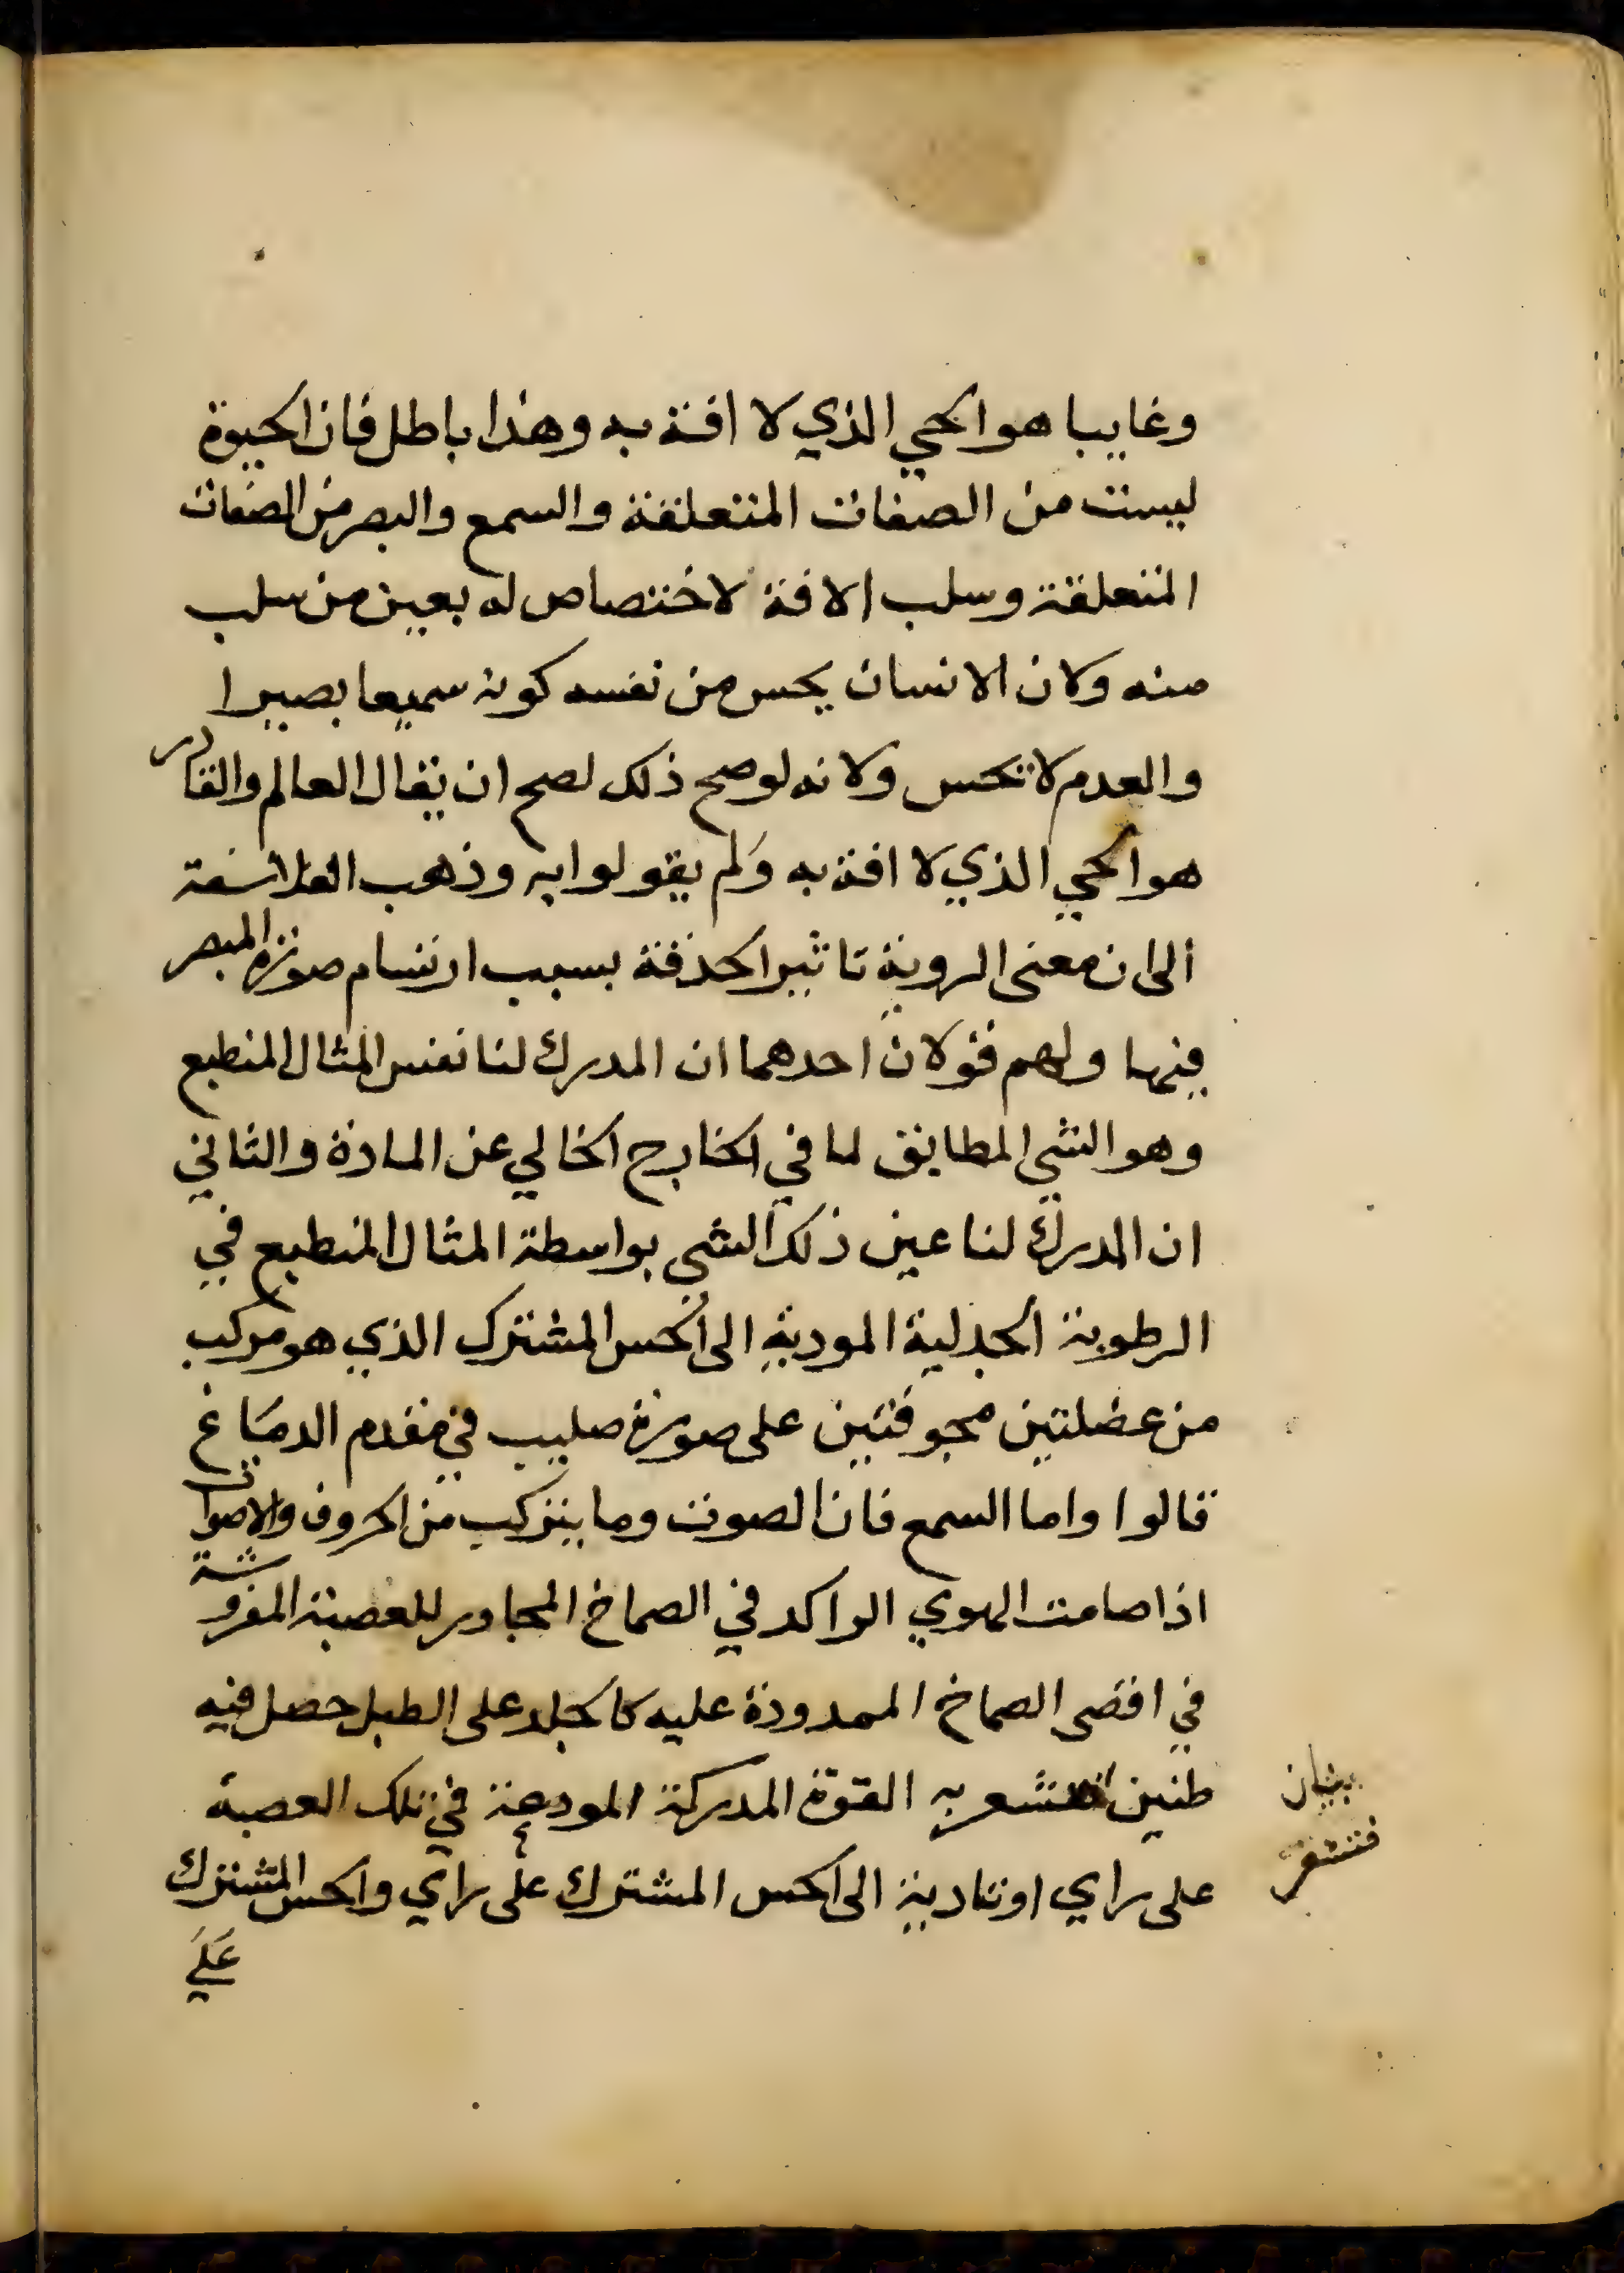 وغايبا هو الحي الذي لا افة به وهذا باطل فان الحيوة
ليست من الصفات المتعلقة والسمع والبصر من الصفات
المتعلقة وسلب الافة لاختصاص له بعين من سلب
منه وكان الانسان يحس من نفسه كونه سميعا بصيرا
والعدم لا تحس ولانه لو صح ذلك لصح ان يقال العالم والقادر
هو الحي الذي لا افة به ولم يقولوا به وذهب الفلاسفة
الى ان معنى الروية تاثير الحدقة بسبب ارتسام صورة المبصر
فيها ولهم قولان احدهما ان المدرك لنا نفس المثال المنطبع
وهو الشي المطابق لما في الخارج الخالي عن المادة والثاني
ان المدرك لنا عين ذلك الشي بواسطة المثال المنطبع في
الرطوبة الجدلية المودية الى الحس المشترك الذي هو مركب
من عضلتين مجوفتين على صورة صليب في مقدم الدماغ
قالوا واما السمع فان الصوت وما يتركب من الحروف والاصوات
اذا صامت الهوي الراكد في الصماخ المجاور للعصبة المفروشة
في اقصى الصماخ الممدودة عليه كالجلد على الطبل حصل فيه
طنين تشعر به القوة المدركة المودعة في تلك العصبة
على راي او تادية الى الحس المشترك على راي والحس المشترك
علي
بيان